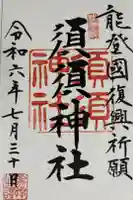 能登國復興祈願
須須神社
須須神社
令和六年七月三十日